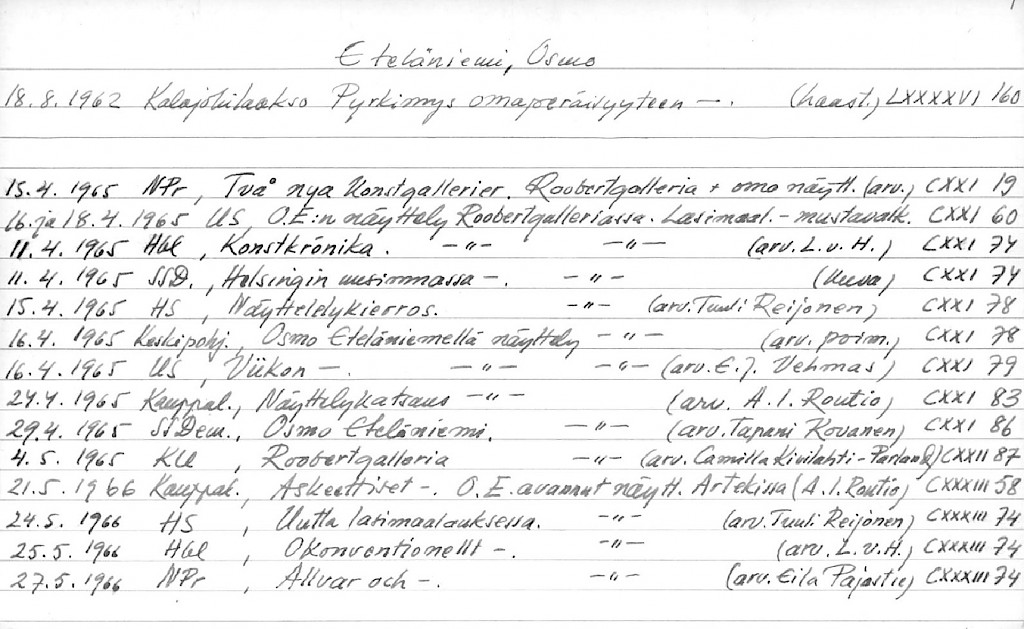 Eteläniemi, Osmo
18.8.1962 Kalajokilaakso Pyrkimys omaperäisyyteen —. (haast.) LXXXXVI 160
15.4. 1965 NPr, Två nya Konstgallerier. Roobertgalleria + oma näytt. (arv.) CXXI 19
16. ja 18.4. 1965 US O.E:n näyttely Roobertgalleriassa. Lasimaal. - mustavalk. CXXI 60
11.4. 1965 Hbl, Konstkrönika. —"— —"— (arv. L.v.H.) CXXI 74
11.4. 1965 SSD., Helsingin uusimmassa —. —"— (kuva) CXXI 74
15.4. 1965 HS, Näyttelykierros. —"— (arv. Tuuli Reijonen) CXXI 78
16.4. 1965 Keskipohj., Osmo Eteläniemellä näyttely —"— (arv. poim.) CXXI 78
16.4. 1965 US, Viikon —. —"— —"— (arv. E.J. Vehmas) CXXI 79
24.4. 1965 Kauppal., Näyttelykatsaus —"— (arv. A.I. Routio) CXXI 83
29.4. 1965 SSDem., Osmo Eteläniemi. —"— (arv. Tapani Kovanen) CXXI 86
4.5. 1965 KU, Roobertgalleria —"— (arv. Camilla Kivilahti-Parland) CXXII 87
21.5. 1966 Kauppal., Askeettiset —. O.E. avannut näytt. Artekissa (A.I. Routio) CXXXIII 58
24.5. 1966 HS, Uutta lasimaalauksessa. —"— (arv. Tuuli Reijonen) CXXXIII 74
25.5. 1966 Hbl, Okonventionellt —. —"— (arv. L.v.H.) CXXXIII 74
27.5. 1966 NPr, Allvar och —. —"— (arv. Eila Pajastie) CXXXIII 74